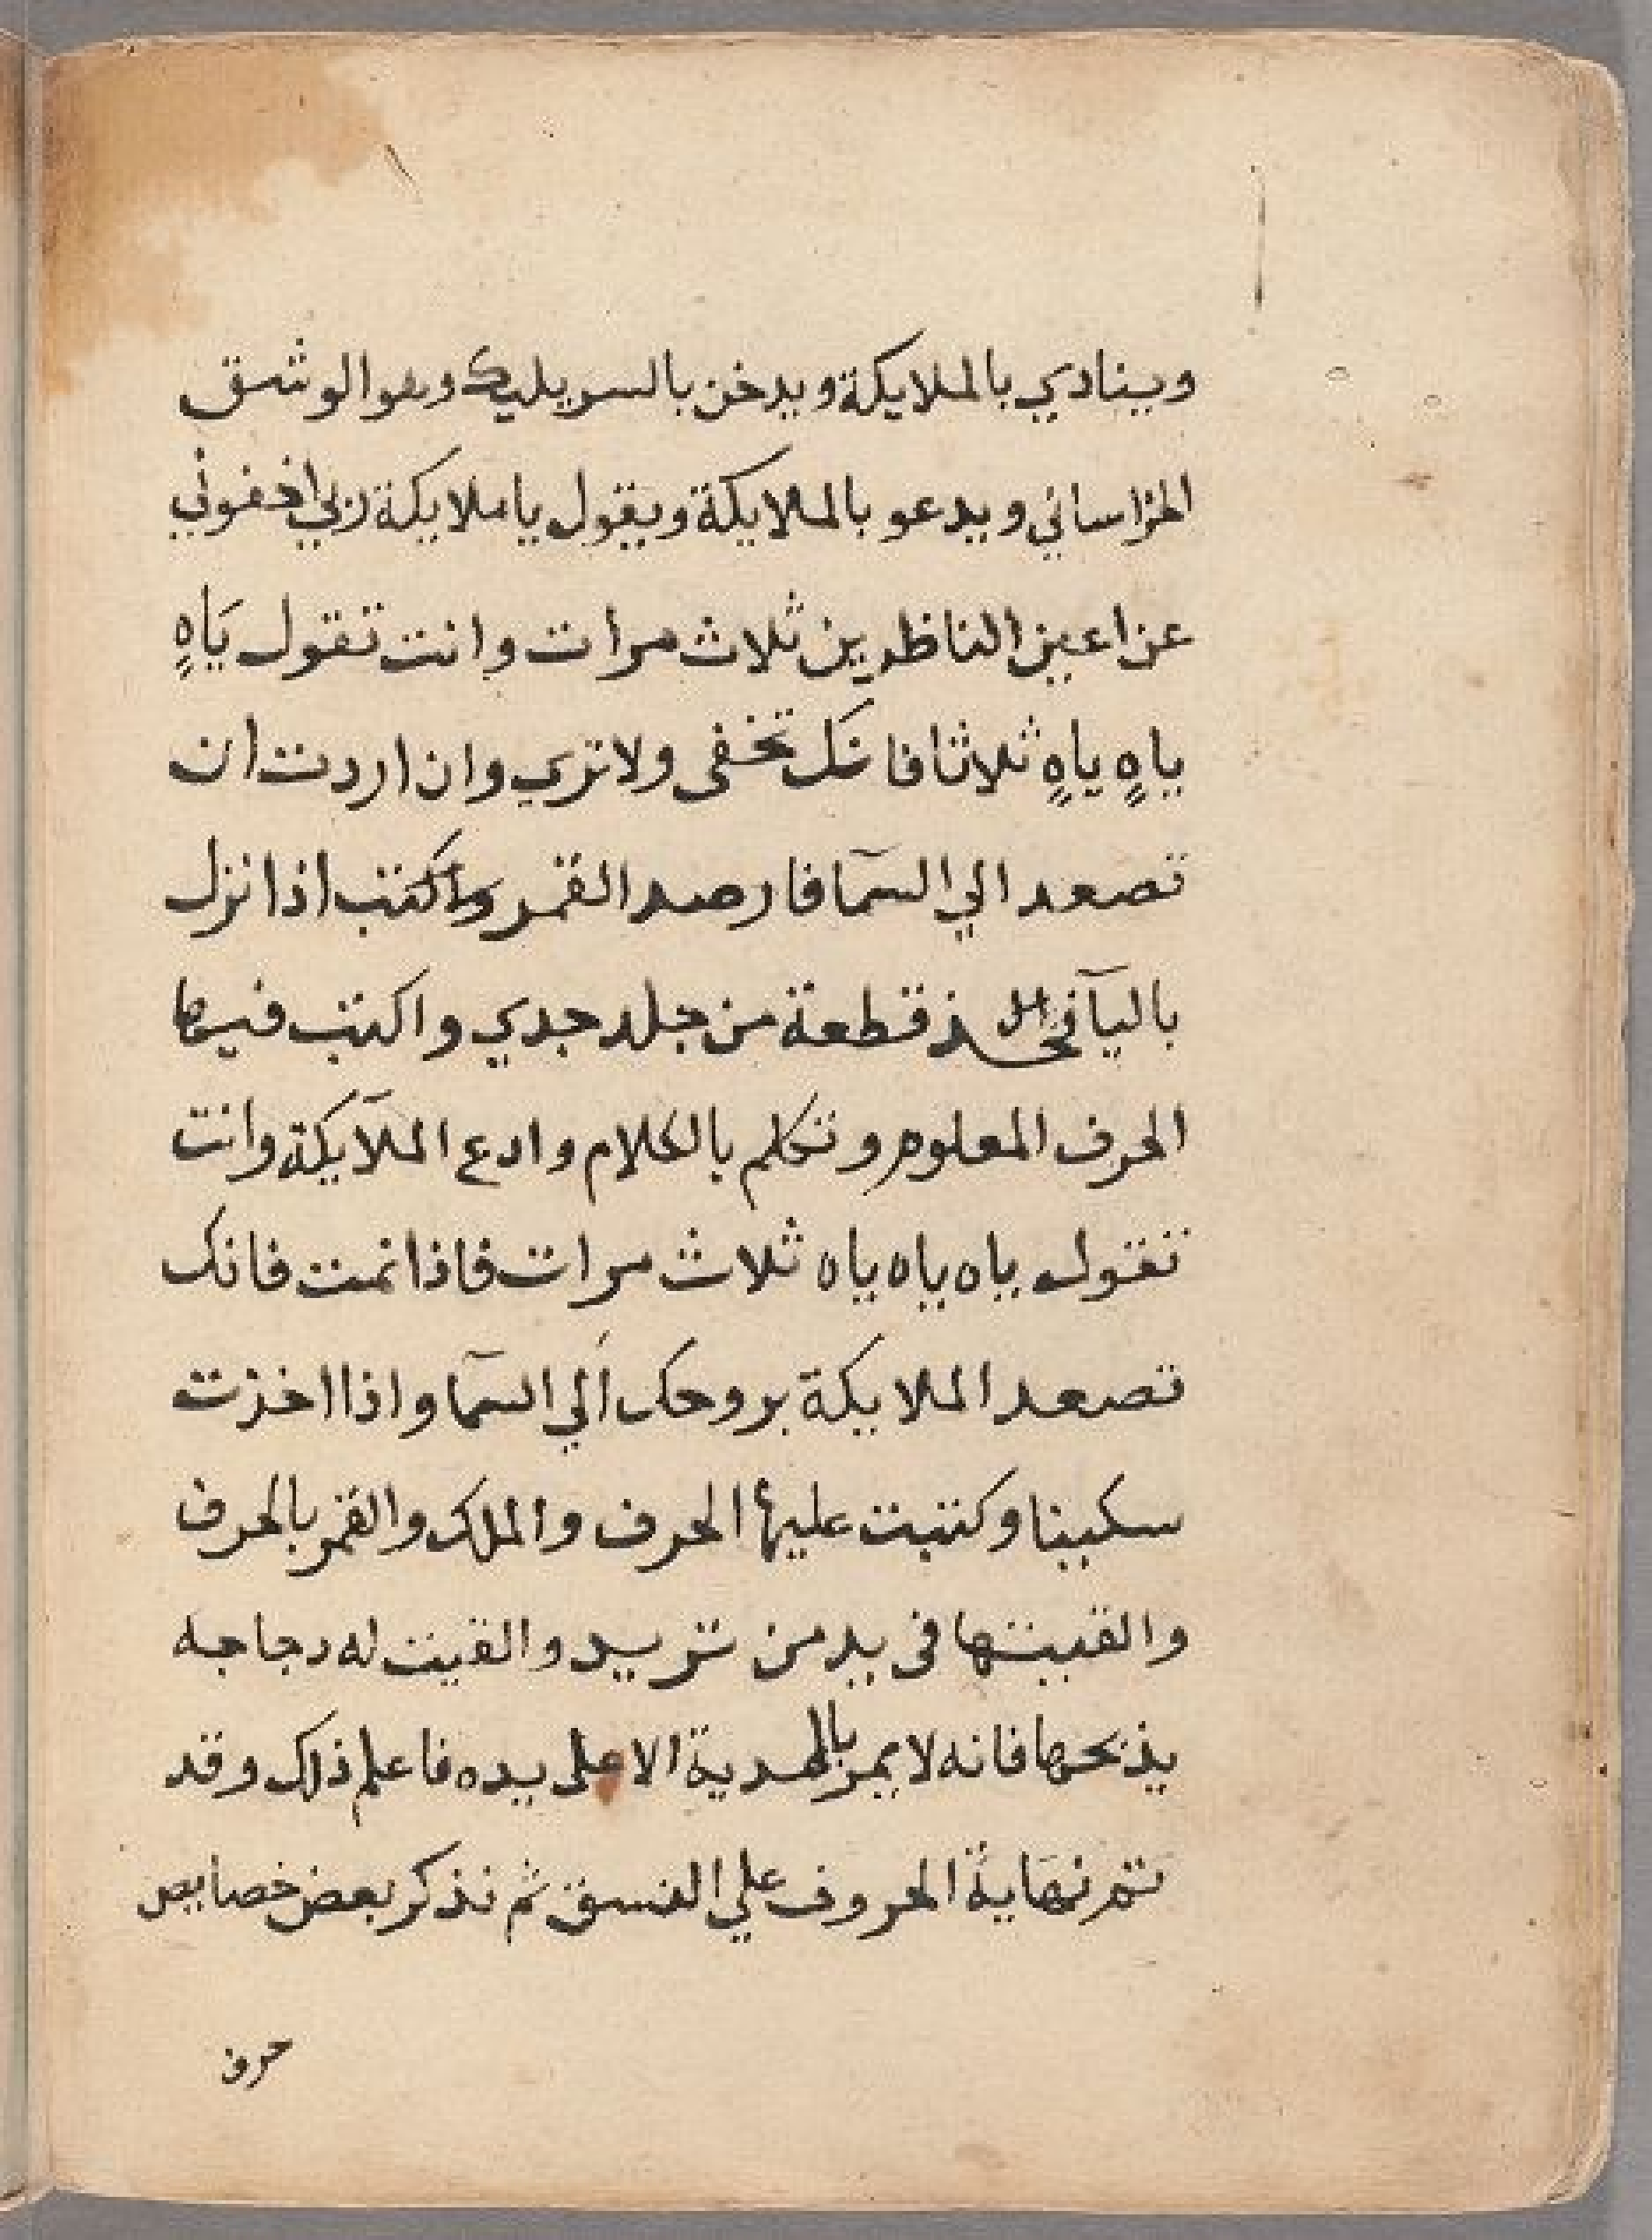 وينادي بالملايكة ويدخن بالسريليك وهو الوشق
الخراساني ويدعو بالملايكة ويقول يا ملايكة ربي اخفوني
عن اعين الناظرين ثلاث مرات وانت تقول ياه
ياه ياه ثلاثا فانك تخفى ولا تري وان اردت ان
تصعد الي السمآ فارصد القمر واكتب اذا نزل
باليآ فخذ قطعة من جلد جدي واكتب فيها
الحرف المعلوم وتكلم بالكلام وادع الملآيكة وانت
تقول ياه ياه ياه ثلاث مرات فاذا نمت فانك
تصعد الملايكة بروحك الي السمآ واذا اخذت
سكينا وكتبت عليها الحرف والملك والقمر بالحرف
والقيتها في يد من تريد والقيت له دجاجه
يذبحها فانه لا يمر بالهدية الا على يده فاعلم ذلك وقد
تم نهاية الحروف علي النسق ثم نذكر بعض خصايص
حرف